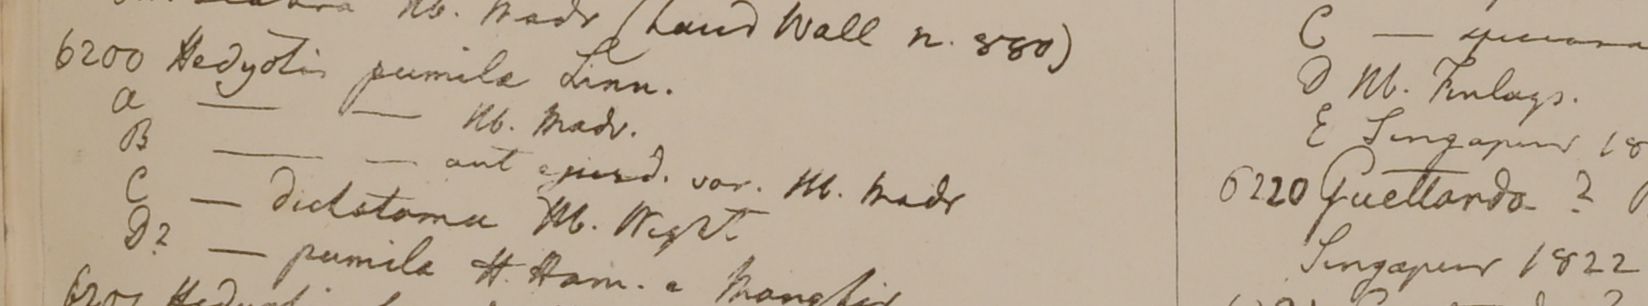 Hb. Madr (haud Wall n. 880)
6200 Hedyotis pumila Linn.
a — — Hb. Madr.
B — — aut ejusd. var. Hb. Madr
C — dichotoma Hb. Wight.
D? — pumila H. Ham. e
6201
C —
D Hb. Finlays.
E Singapur 18
6220 Guettarda ?
Singapur 1822